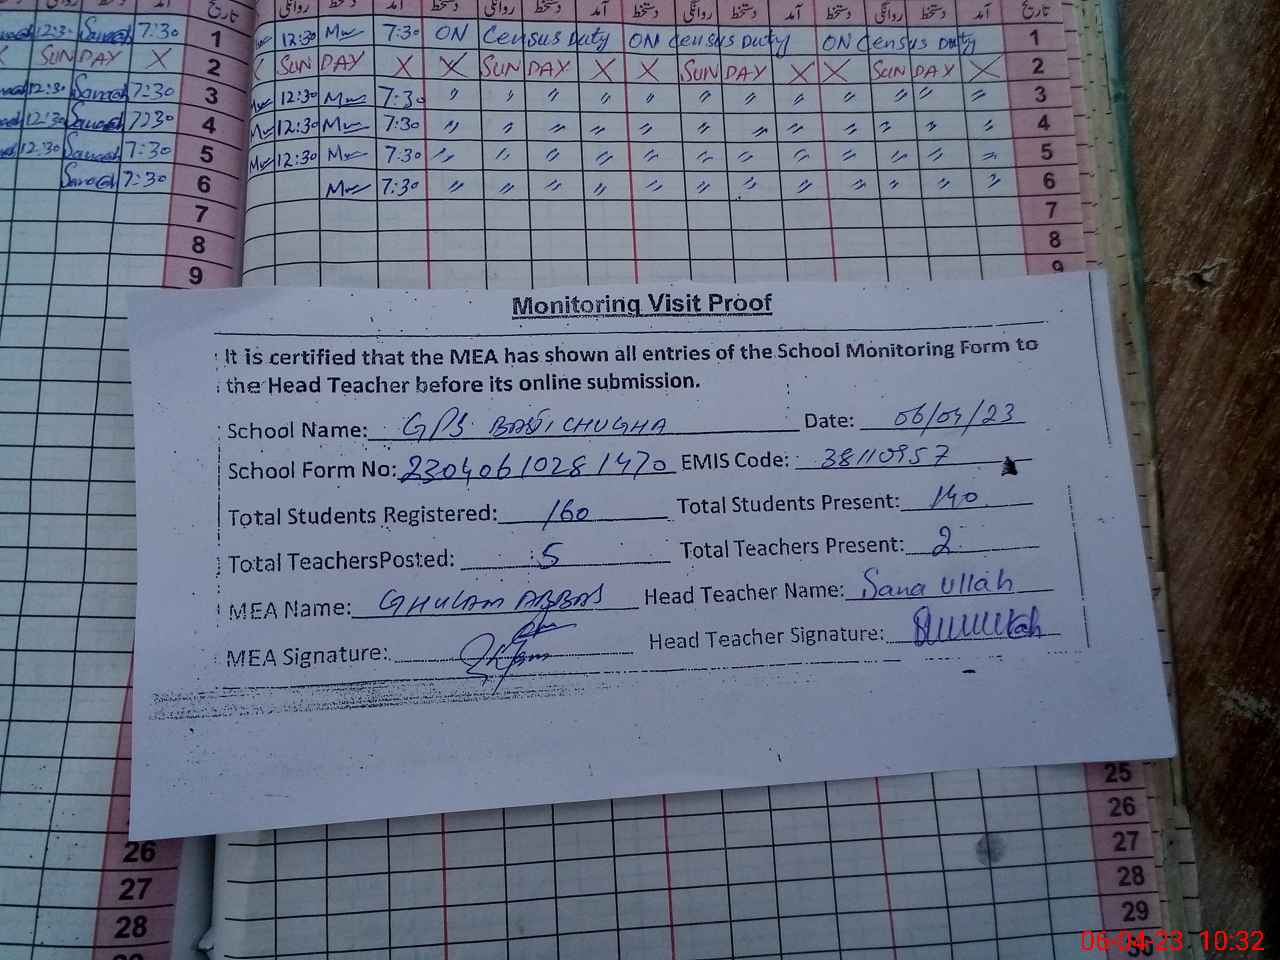 روانگی دستخط آمد تاریخ روانگی دستخط آمد روانگی دستخط آمد روانگی دستخط آمد روانگی دستخط آمد تاریخ
12:30 7:30 1 12:30 7:30 ON Census Duty ON Census Duty ON Census Duty 1
X SUNDAY X 2 SUNDAY X X SUNDAY X X SUNDAY X X SUNDAY X 2
12:30 7:30 3 12:30 7:30 〃 〃 〃 〃 〃 〃 〃 〃 〃 〃 〃 〃 3
12:30 7:30 4 12:30 7:30 〃 〃 〃 〃 〃 〃 〃 〃 〃 〃 〃 〃 4
12:30 7:30 5 12:30 7:30 〃 〃 〃 〃 〃 〃 〃 〃 〃 〃 〃 〃 5
7:30 6 7:30 〃 〃 〃 〃 〃 〃 〃 〃 〃 〃 〃 〃 6
7 7
8 8
9 9
Monitoring Visit Proof
It is certified that the MEA has shown all entries of the School Monitoring Form to
the Head Teacher before its online submission.
School Name: GPS BASTI CHUGHA Date: 06/04/23
School Form No: 23040610281470 EMIS Code: 38110957
Total Students Registered: 160 Total Students Present: 140
Total TeachersPosted: 5 Total Teachers Present: 2
MEA Name: GHULAM ABBAS Head Teacher Name: Sana Ullah
MEA Signature: Head Teacher Signature:
25
26 26
27 27
28 28
29
06-04-23 10:32